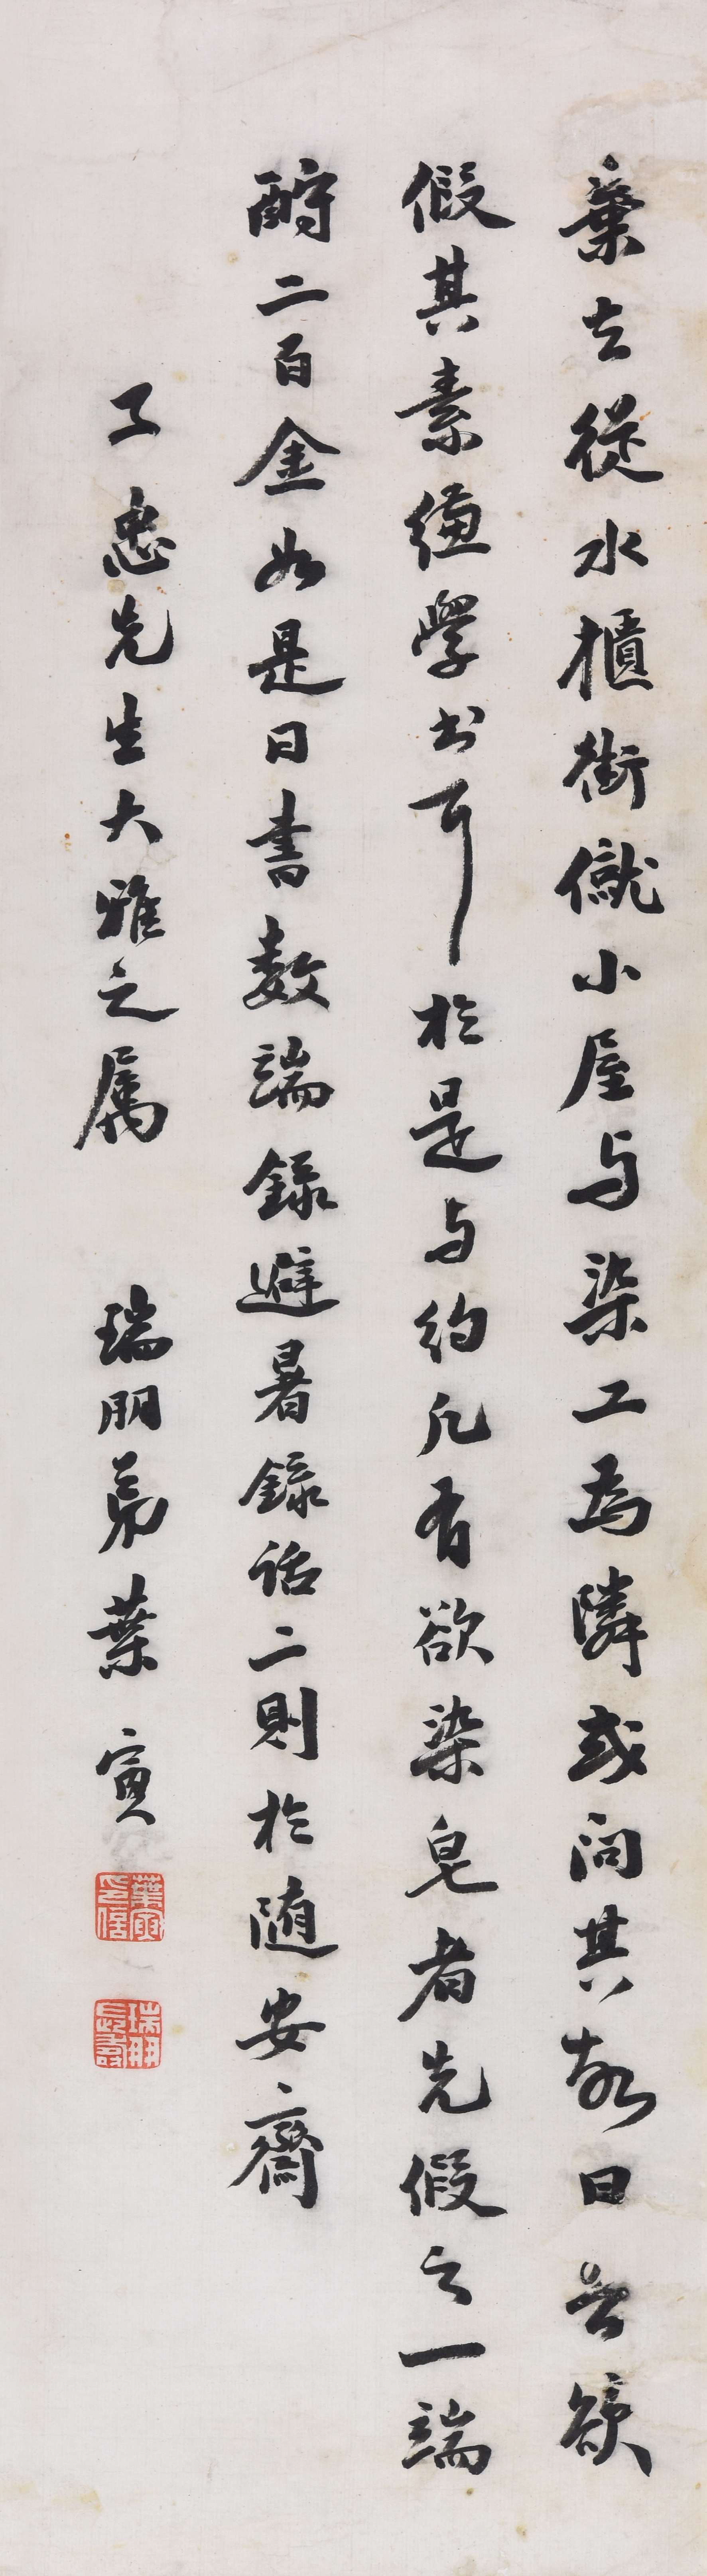 棄去從水櫃街僦小屋与染工為隣或问其故曰吾欲
假其素缣學书耳於是与约凡有欲染皂者先假之一端
酧二百金如是日書数端録避暑録话二則於随安齋
子忠先生大雅之属 瑞朋弟葉寅
葉寅印信
瑞朋長壽